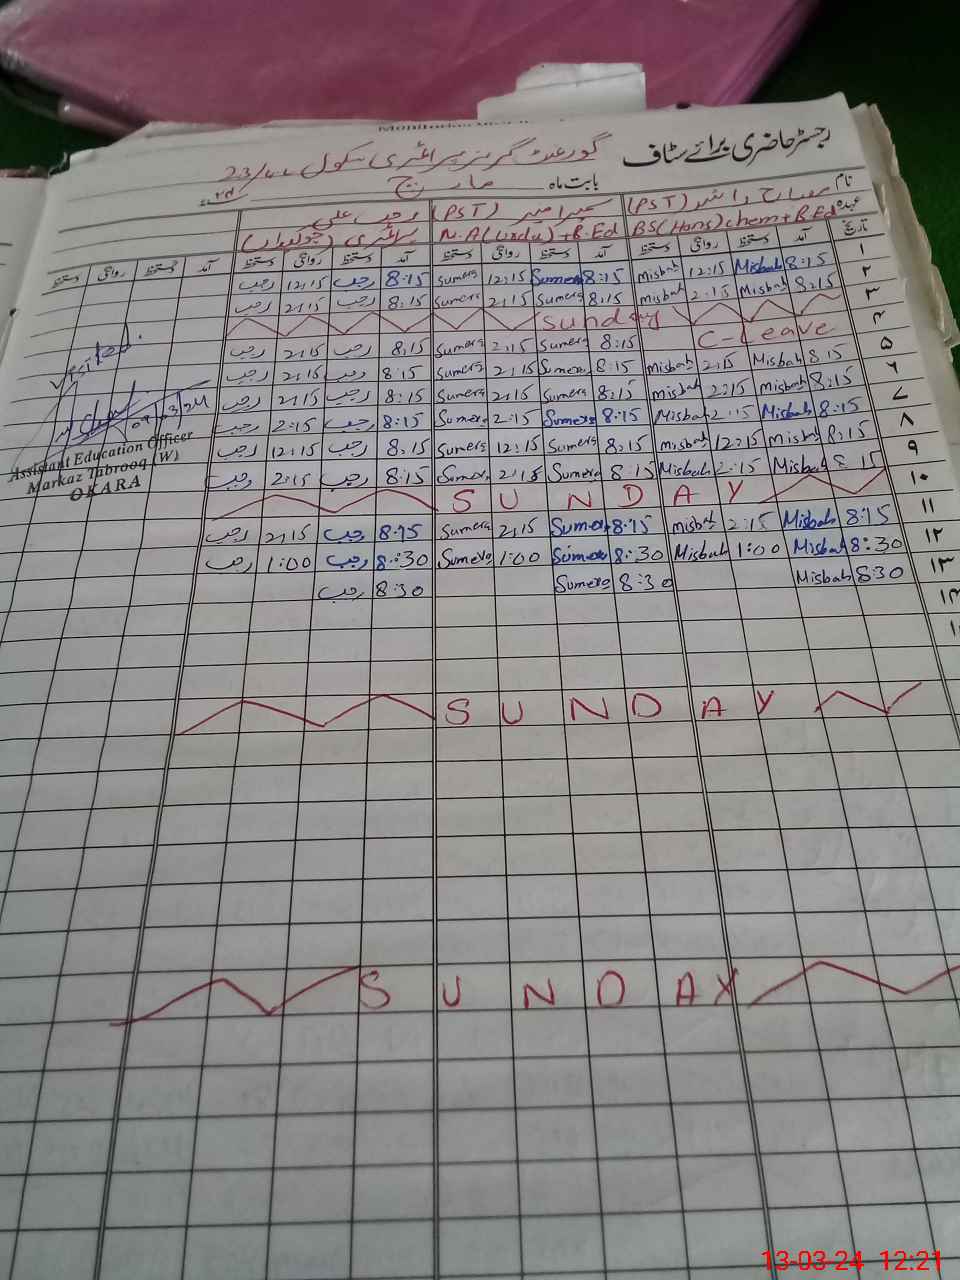 رجسٹر حاضری برائے سٹاف
گورنمنٹ گرلز پرائمری سکول 23/4L
بابت ماہ مارچ
نام (PST) سمیرا (PST) رجب علی
عہدہ BS(Hons)chem+B.Ed M.A(Urdu)+B.Ed
تاریخ آمد دستخط روانگی دستخط آمد دستخط روانگی دستخط آمد دستخط روانگی دستخط آمد دستخط روانگی دستخط
۱ 8:15 Misbah 12:15 Misbah 8:15 Sumera 12:15 Sumera 8:15 رجب 12:15 رجب
۲ 8:15 Misbah 2:15 Misbah 8:15 Sumera 2:15 Sumera 8:15 رجب 2:15 رجب
۳ Sunday
۴ C-Leave 8:15 Sumera 2:15 Sumera 8:15 رجب 2:15 رجب
۵ 8:15 Misbah 2:15 Misbah 8:15 Sumera 2:15 Sumera 8:15 رجب 2:15 رجب
۶ 8:15 Misbah 2:15 Misbah 8:15 Sumera 2:15 Sumera 8:15 رجب 2:15 رجب
۷ 8:15 Misbah 2:15 Misbah 8:15 Sumera 2:15 Sumera 8:15 رجب 2:15 رجب
۸ 8:15 Misbah 12:15 Misbah 8:15 Sumera 12:15 Sumera 8:15 رجب 12:15 رجب
۹ 8:15 Misbah 2:15 Misbah 8:15 Sumera 2:15 Sumera 8:15 رجب 2:15 رجب
۱۰ SUNDAY
۱۱ 8:15 Misbah 2:15 Misbah 8:15 Sumera 2:15 Sumera 8:15 رجب 2:15 رجب
۱۲ 8:30 Misbah 1:00 Misbah 8:30 Sumera 1:00 Sumera 8:30 رجب 1:00 رجب
۱۳ 8:30 Misbah 8:30 Sumera 8:30 رجب
۱۴
SUNDAY
SUNDAY
Visited.
Assistant Education Officer
Markaz Tabrooq (W)
OKARA
13-03-24 12:21